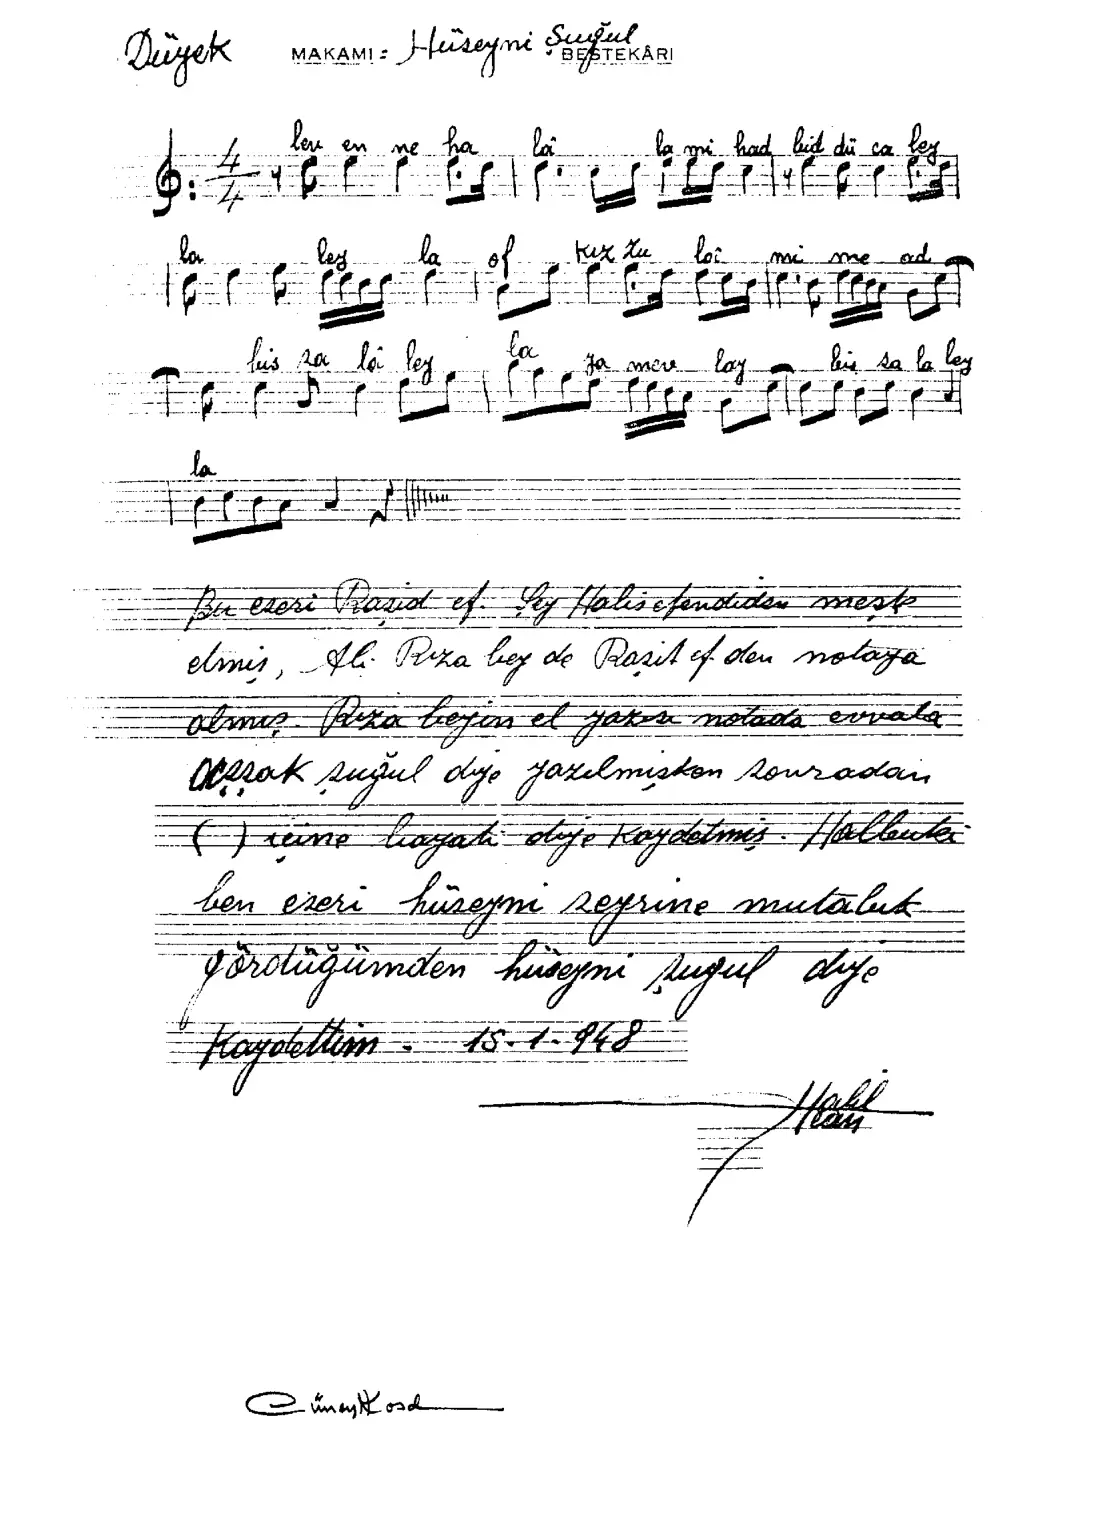 Düyek MAKAMI : Hüseyni Şuğul BESTEKÂRI
4/4 lev en ne ha lâ la mi had bid dü ca ley
la ley la of kız zu loi mi me ad
bis sa lâ ley la ya mev lay bis sa la ley
la
Bu eseri Raşid ef. Şey Halis efendiden meşk
etmiş, Ali Rıza bey de Raşit ef den notaya
almış. Rıza beyin el yazısı notada evvala
uşşak şuğul diye yazılmışken sonradan
( ) içine bayati diye kaydetmiş. Halbuki
ben eseri hüseyni seyrine mutabık
gördüğümden hüseyni şuğul diye
Kaydettim. 15-1-948
Halil
Can
Cüneyt Kosal